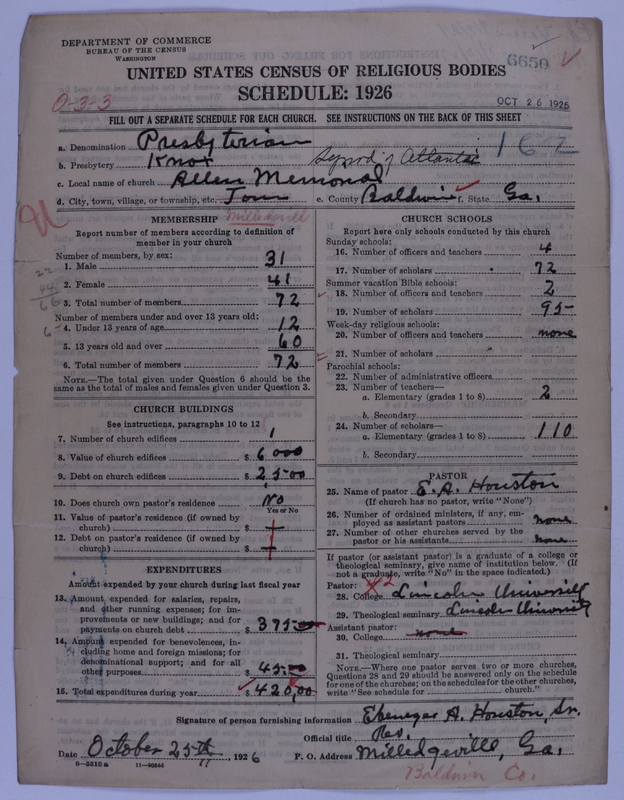 DEPARTMENT OF COMMERCE
BUREAU OF THE CENSUS
WASHINGTON
6650
UNITED STATES CENSUS OF RELIGIOUS BODIES
SCHEDULE: 1926
0-3-3
OCT 26 1926
FILL OUT A SEPARATE SCHEDULE FOR EACH CHURCH. SEE INSTRUCTIONS ON THE BACK OF THIS SHEET
a. Denomination Presbyterian
b. Presbytery Knox Synod of Atlanta 162
c. Local name of church Allen Memorial
d. City, town, village, or township, etc. Town e. County Baldwin f. State Ga.
Milledgevill
MEMBERSHIP
Report number of members according to definition of
member in your church
Number of members, by sex:
1. Male 31
2. Female 41
3. Total number of members 72
Number of members under and over 13 years old:
4. Under 13 years of age 12
5. 13 years old and over 60
6. Total number of members 72
NOTE.—The total given under Question 6 should be
the same as the total of males and females given under Question 3.
CHURCH BUILDINGS
See instructions, paragraphs 10 to 12
7. Number of church edifices 1
8. Value of church edifices $ 6000
9. Debt on church edifices $ 2500
10. Does church own pastor's residence No
Yes or No
11. Value of pastor's residence (if owned by
church) $
12. Debt on pastor's residence (if owned by
church) $
EXPENDITURES
Amount expended by your church during last fiscal year
13. Amount expended for salaries, repairs,
and other running expenses; for im-
provements or new buildings; and for
payments on church debt $ 375.00
14. Amount expended for benevolences, in-
cluding home and foreign missions; for
denominational support; and for all
other purposes $ 45.00
15. Total expenditures during year $ 420,00
CHURCH SCHOOLS
Report here only schools conducted by this church
Sunday schools:
16. Number of officers and teachers 4
17. Number of scholars 72
Summer vacation Bible schools:
18. Number of officers and teachers 2
19. Number of scholars 95
Week-day religious schools:
20. Number of officers and teachers none
21. Number of scholars
Parochial schools:
22. Number of administrative officers
23. Number of teachers—
a. Elementary (grades 1 to 8) 2
b. Secondary
24. Number of scholars—
a. Elementary (grades 1 to 8) 110
b. Secondary
PASTOR
25. Name of pastor E. A. Houston
(If church has no pastor, write "None")
26. Number of ordained ministers, if any, em-
ployed as assistant pastors none
27. Number of other churches served by the
pastor or his assistants none
If pastor (or assistant pastor) is a graduate of a college or
theological seminary, give name of institution below. (If
not a graduate, write "No" in the space indicated.)
Pastor:
28. College Lincoln University
29. Theological seminary Lincoln University
Assistant pastor:
30. College none
31. Theological seminary
NOTE.—Where one pastor serves two or more churches,
Questions 28 and 29 should be answered only on the schedule
for one of the churches; on the schedules for the other churches,
write "See schedule for church."
Signature of person furnishing information Ebenezer A. Houston, Sr.
Official title Rev.
Date October 25th, 1926 P. O. Address Milledgeville, Ga.
8-5510 a 11-90555
Baldwin Co.